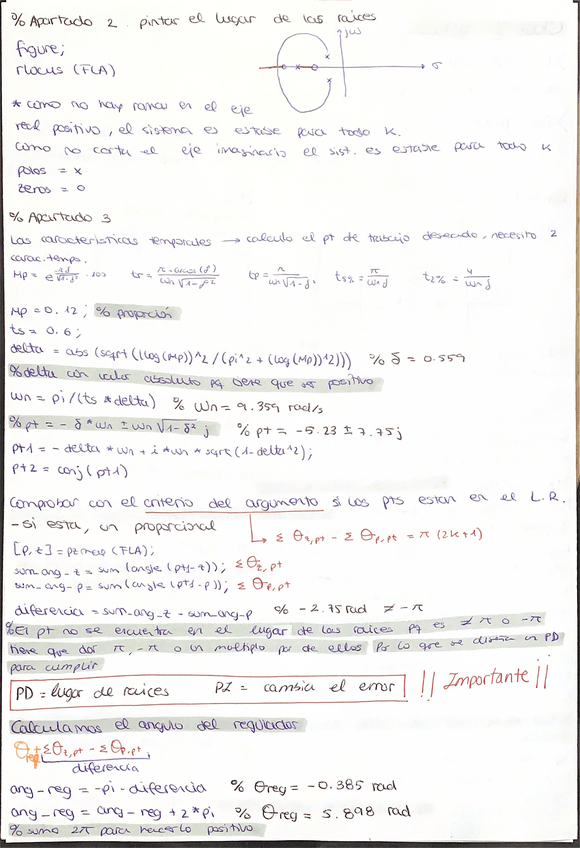 % Apartado 2. pintar el lugar de las raices
jω
figure;
rlocus (FLA)
σ
* como no hay ramas en el eje
real positivo, el sistema es estable para todo K.
como no corta el eje imaginario el sist. es estable para todo K
polos = x
zeros = o
% Apartado 3
Las características temporales → calculo el pt de trabajo deseado, necesito 2
carac. temps.
Mp = 0.12; % proporción
ts = 0.6;
delta = abs (sqrt ((log(Mp))^2 / (pi^2 + (log(Mp))^2))) % δ = 0.559
% delta con valor absoluto pq tiene que ser positivo
wn = pi/(ts * delta) % wn = 9.359 rad/s
% pt = - δ * wn ± wn √1-δ² j % pt = -5.23 ± 7.75j
pt1 = - delta * wn + i * wn * sqrt (1-delta^2);
pt2 = conj (pt1)
Comprobar con el criterio del argumento si los pts estan en el L.R.
- si esta, un proporcional
Σ θz,pt - Σ θp,pt = π (2k+1)
[p, z] = pzmap (FLA);
sum_ang_z = sum (angle (pt1-z)); Σθz,pt
sum_ang_p = sum (angle (pt1-p)); Σ θp,pt
diferencia = sum_ang_z - sum_ang_p % -2.75 rad ≠ -π
% El pt no se encuentra en el lugar de las raices pq es ≠ π o -π
tiene que dar π, -π o un multiplo por de ellos Por lo que se diseña un PD
para cumplir
PD = lugar de raices PI = cambia el error !! Importante ¡¡
Calculamos el angulo del regulador
θreg + Σθz,pt - Σθp,pt
diferencia
ang_reg = -pi - diferencia % θreg = -0.385 rad
ang_reg = ang_reg + 2*pi % θreg = 5.898 rad
% sumo 2π para hacerlo positivo